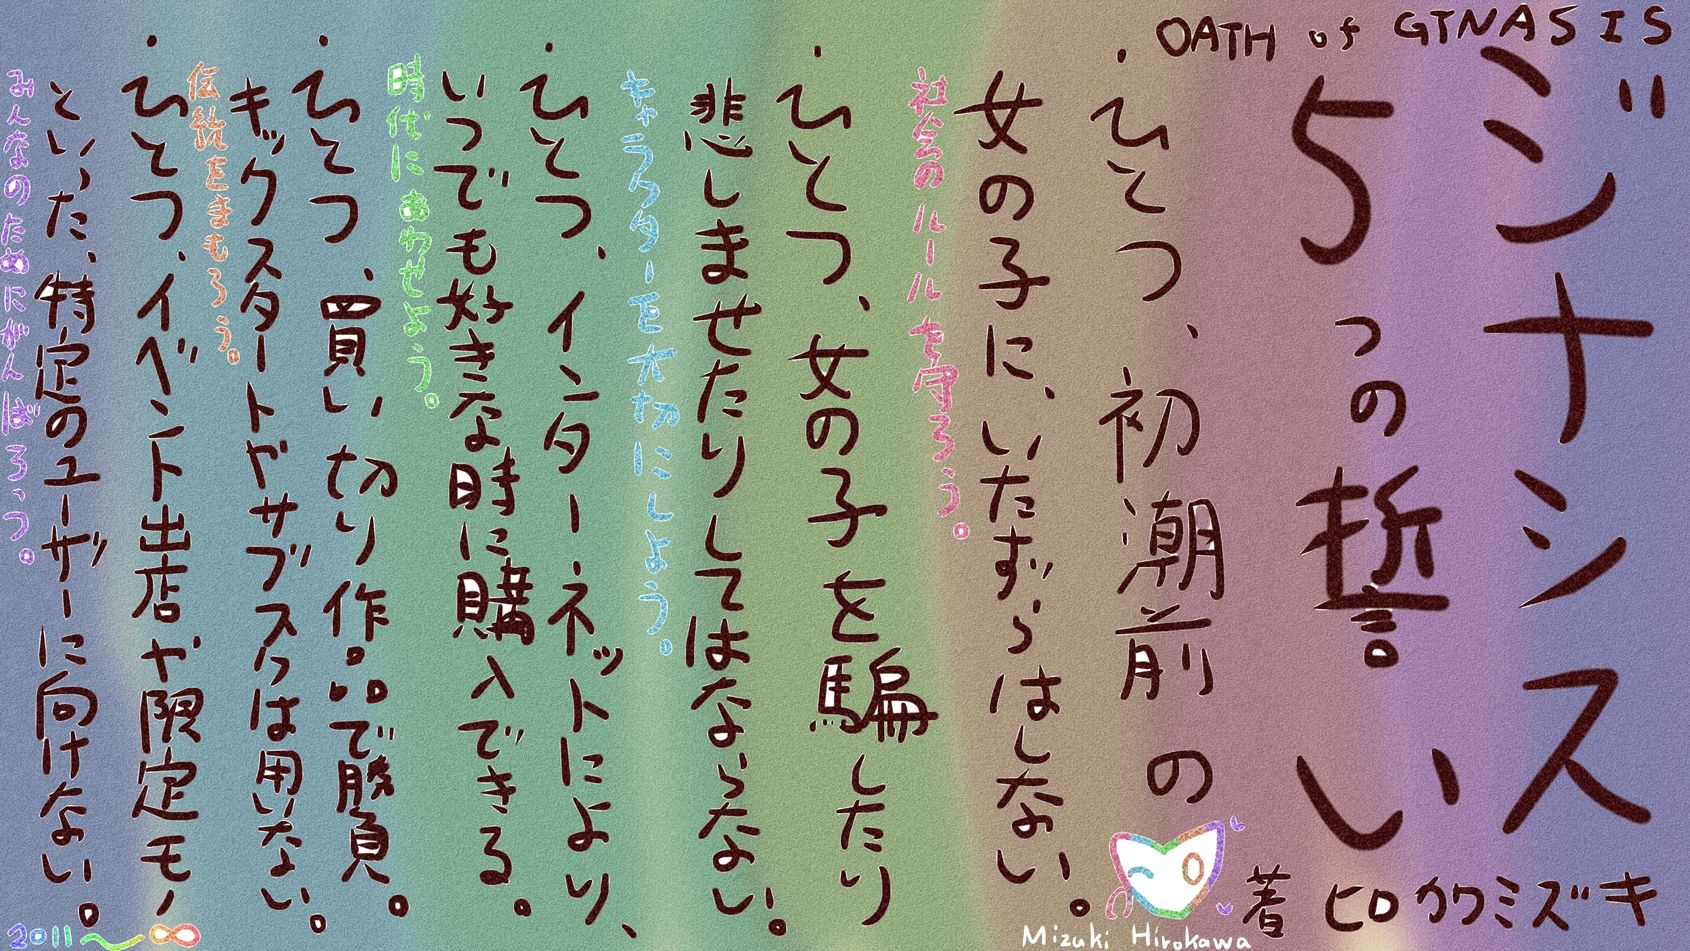 OATH of GINASIS
ジナシス
5つの誓い
著 ヒロカワミズキ
・ひとつ、初潮前の
女の子に、いたずらはしない。
社会のルールを守ろう。
・ひとつ、女の子を騙したり
悲しませたりしてはならない。
キャラクターを大切にしよう。
・ひとつ、インターネットにより、
いつでも好きな時に購入できる。
時代にあわせよう。
・ひとつ、買い切り作品で勝負。
キックスタートやサブスクは用いない。
伝統をまもろう。
・ひとつ、イベント出店や限定モノ
といった、特定のユーザーに向けない。
みんなのためにがんばろっ。
Mizuki Hirokawa
2011〜∞